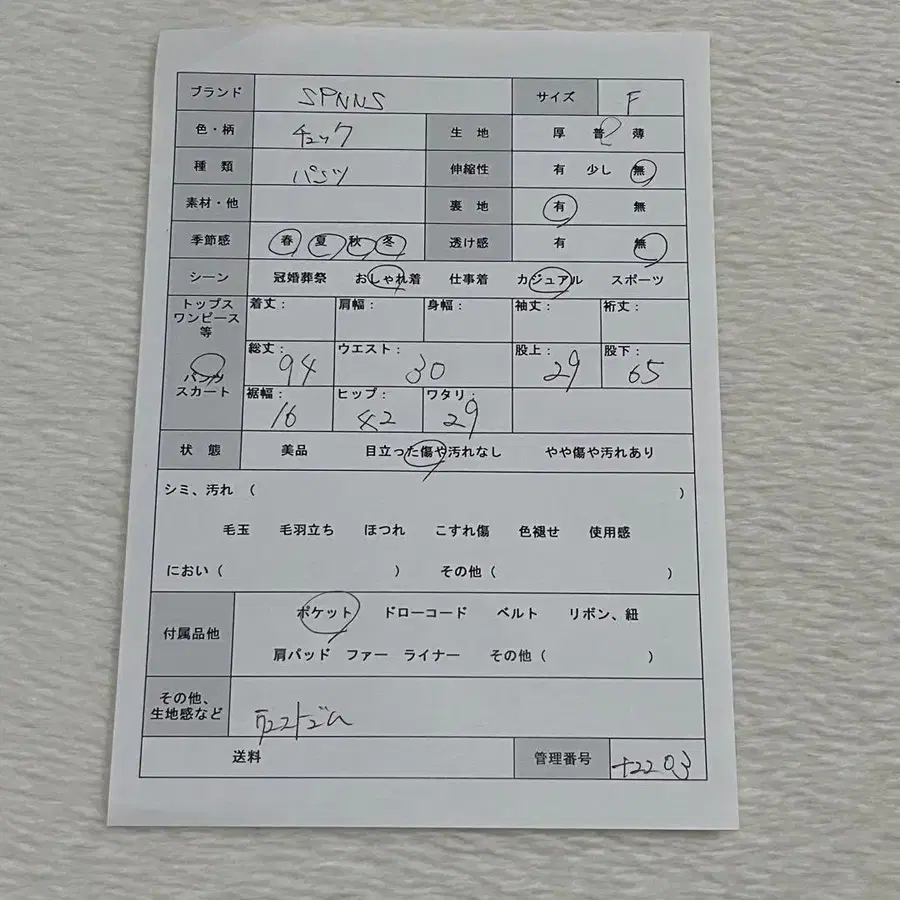 ブランド SPNNS サイズ F
色・柄 チェック 生地 厚 普 薄
種類 パンツ 伸縮性 有 少し 無
素材・他 裏地 有 無
季節感 春 夏 秋 冬 透け感 有 無
シーン 冠婚葬祭 おしゃれ着 仕事着 カジュアル スポーツ
トップス
ワンピース
等
着丈: 肩幅: 身幅: 袖丈: 裄丈:
パンツ
スカート
総丈: 94 ウエスト: 30 股上: 29 股下: 65
裾幅: 16 ヒップ: 42 ワタリ: 29
状態 美品 目立った傷や汚れなし やや傷や汚れあり
シミ、汚れ ( )
毛玉 毛羽立ち ほつれ こすれ傷 色褪せ 使用感
におい ( ) その他 ( )
付属品他
ポケット ドローコード ベルト リボン、紐
肩パッド ファー ライナー その他 ( )
その他、
生地感など
送料 管理番号 +2203